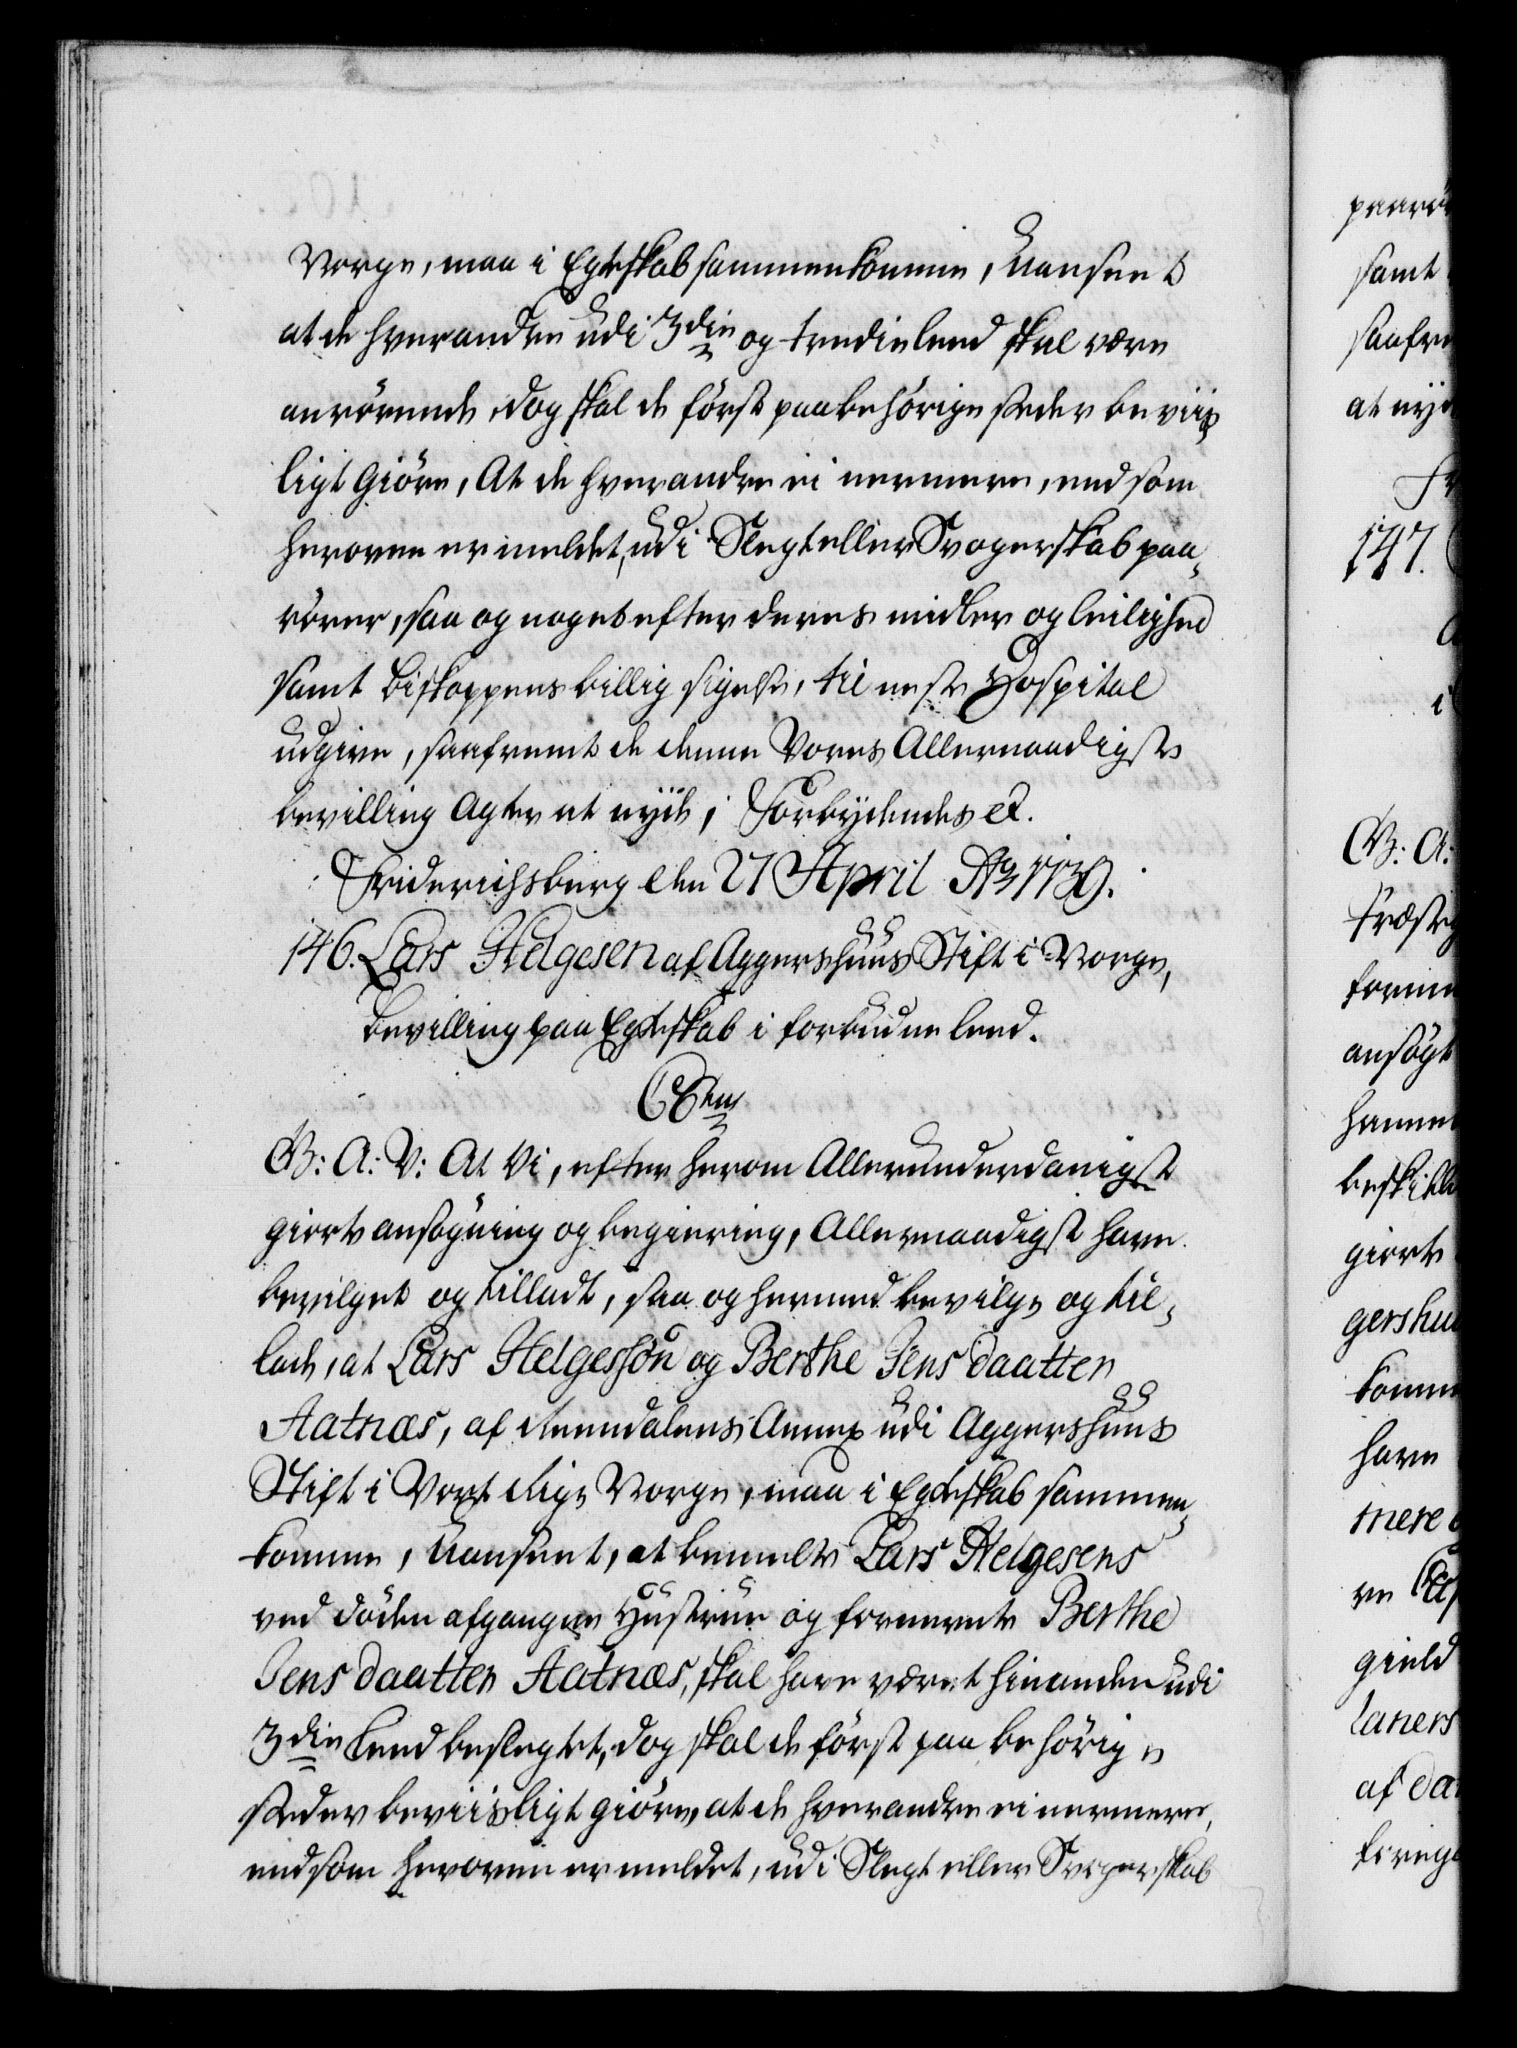 Norge, maa i Egteskab sammenkomme, Uanseet
at de hverandre udi 3die og tredie leed skal være
anrörende, dog skal de först paa behörige stæder beviis
ligt giöre, At de hverandre ei nermere, end som
heroven er meldet, udi Slegt eller Svogerskab paa,
rörer, saa og noget efter deres midler og leilighed
samt biskoppens billig sigelse, til neste Hospital
udgive, saafremt de denne Vores Allernaadigste
bevilling agter at nyde; Forbydendes et.
Friderichsberg den 27 April Ao 1739.
146. Lars Helgesen af Aggershuus Stift i Norge,
bevilling paa Egteskab i forbudne leed.
C6tus
G: A: V: At Vi, efter herom Allerunderdanigst
giorte ansøgning og begiering, Allernaadigst have
bevilget og tilladt, saa og hermed bevilge og til,
lade, at Lars Helgessön og Berthe Jens daatter
Aatnæs, af Reendalens Annex udi Aggershuus
Stift i Vort Rige Norge, maa i Egteskab sammen,
komme, Uanseet, at bemelte Lars Helgesens
ved döden afgangne Hustrue og formente Berthe
Jens daatter Aatnæs, skal have været hinanden udi
3die Leed beslegtet, dog skal de först paa behörige
stæder beviisligt giöre, at de hverandre ei nermere,
end som heroven er meldet, udi Slegt eller Svogerskab
paarö
samt
saafre
at nyd
Fr
147.
i
G: A:
Præste
form
ansøgt
hannem
beskikke
giorte
gershu
komm
have
mere
gield
laners
af da
forege